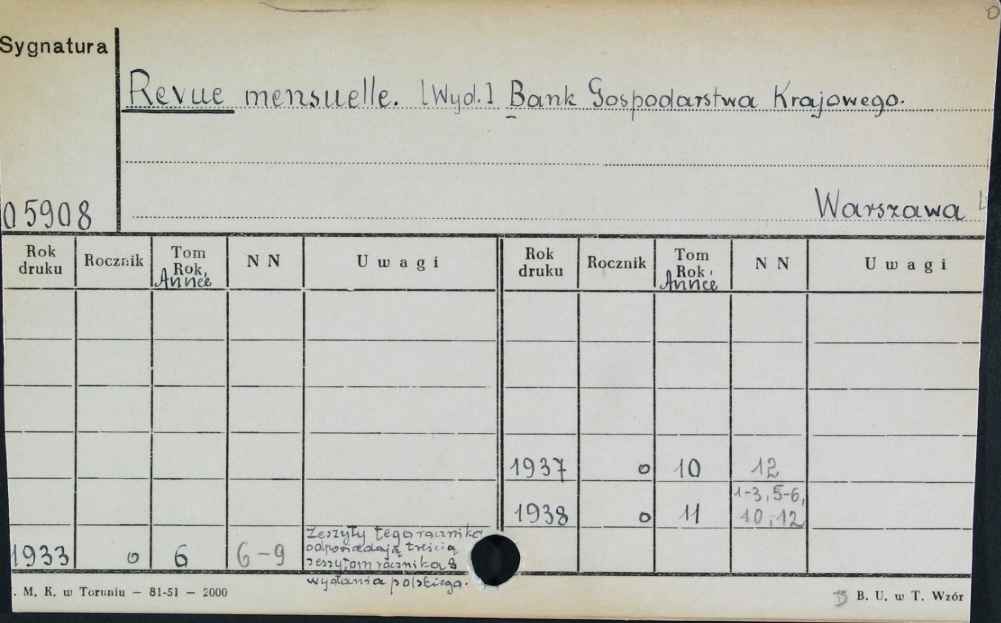 Sygnatura
Revue mensuelle. [Wyd.] Bank Gospodarstwa Krajowego.
05908
Warszawa
Rok druku Rocznik Tom Rok, Année N N Uwagi Rok druku Rocznik Tom Rok, Année N N Uwagi
1937 o 10 12
1938 o 11 1-3, 5-6, 10, 12
1933 o 6 6-9 Zeszyty tego rocznika
odpowiadają treścią
zeszytom rocznika 8
wydania polskiego.
. M. K. w Toruniu — 81-51 — 2000
B. U. w T. Wzór